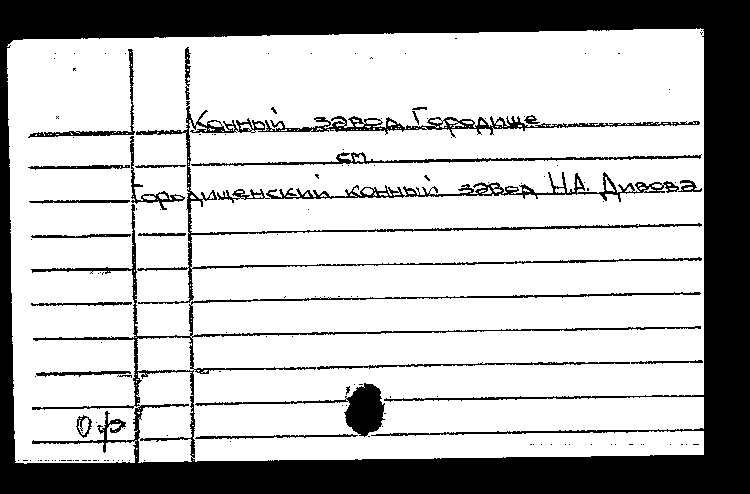 Конный завод Городище
см.
Городищенский конный завод Н.А. Дивова
Оф